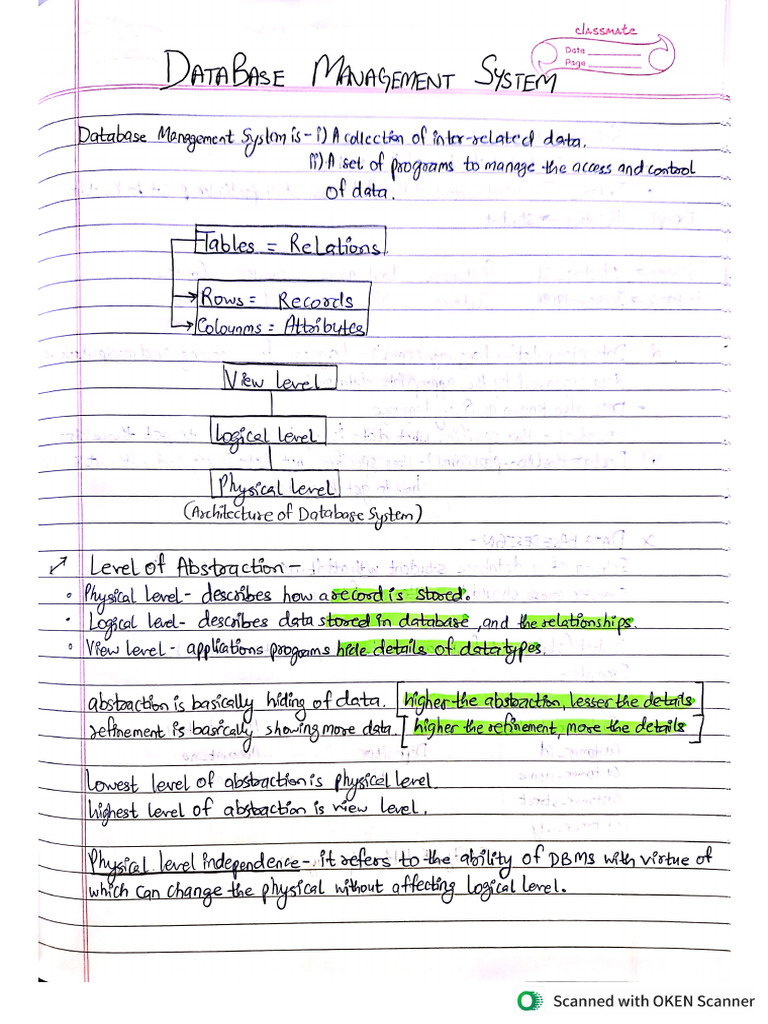 classmate
Date
Page
DATABASE MANAGEMENT SYSTEM
Database Management System is - i) A collection of inter-related data.
ii) A set of programs to manage the access and control
of data.
Tables = Relations
Rows = Records
Colounms = Attributes
View level
Logical level
Physical level
(Architecture of Database System)
Level of Abstraction -
• Physical level - describes how a record is stored.
• Logical level - describes data stored in database, and the relationships.
• View level - applications programs hide details of data types.
abstraction is basically hiding of data. [higher the abstraction, lesser the details
refinement is basically showing more data. [higher the refinement, more the details]
Lowest level of abstraction is physical level.
highest level of abstraction is view level.
Physical level independence - it refers to the ability of DBMS with virtue of
which can change the physical without affecting logical level.
Scanned with OKEN Scanner